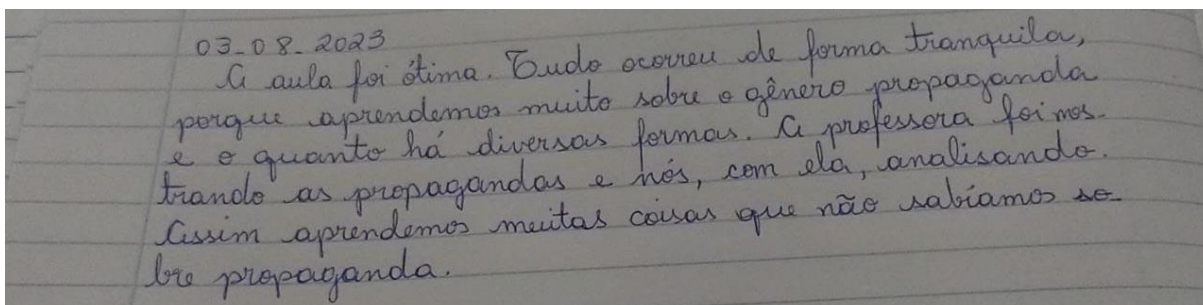 03-08-2023
A aula foi ótima. Tudo ocorreu de forma tranquila,
porque aprendemos muito sobre o gênero propaganda
e o quanto há diversas formas. A professora foi mos-
trando as propagandas e nós, com ela, analisando.
Assim aprendemos muitas coisas que não sabíamos so-
bre propaganda.